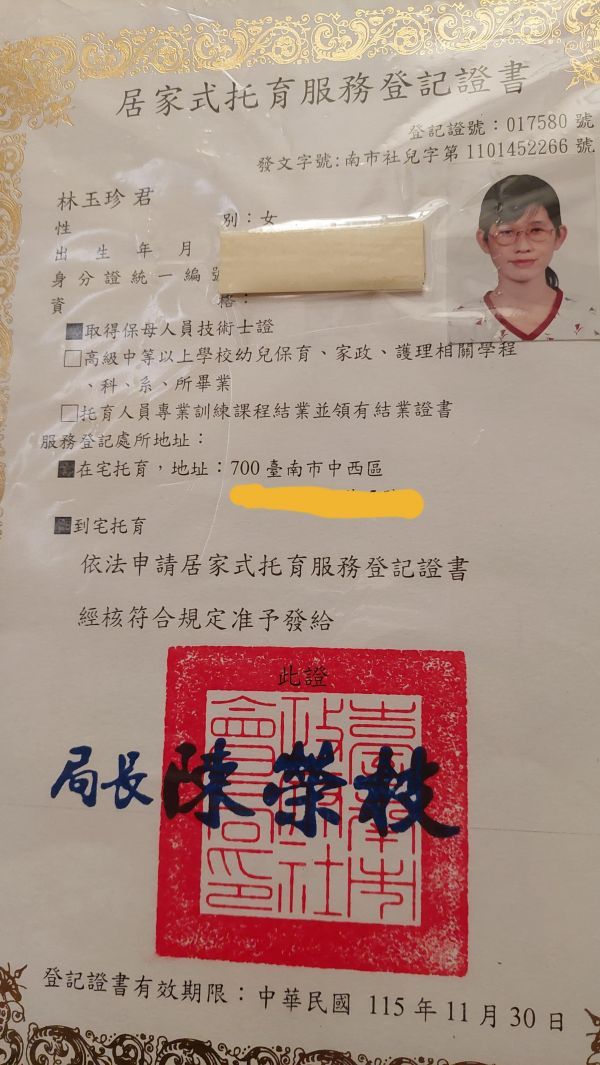 居家式托育服務登記證書
登記證號：017580 號
發文字號:南市社兒字第 1101452266 號
林玉珍 君
性 別：女
出 生 年 月
身 分 證 統 一 編 號
資 格：
■取得保母人員技術士證
□高級中等以上學校幼兒保育、家政、護理相關學程
、科、系、所畢業
□托育人員專業訓練課程結業並領有結業證書
服務登記處所地址：
■在宅托育，地址：700 臺南市中西區
■到宅托育
依法申請居家式托育服務登記證書
經核符合規定准予發給
此證
臺南市政府社會局印
局長 陳榮枝
登記證書有效期限：中華民國 115 年 11 月 30 日